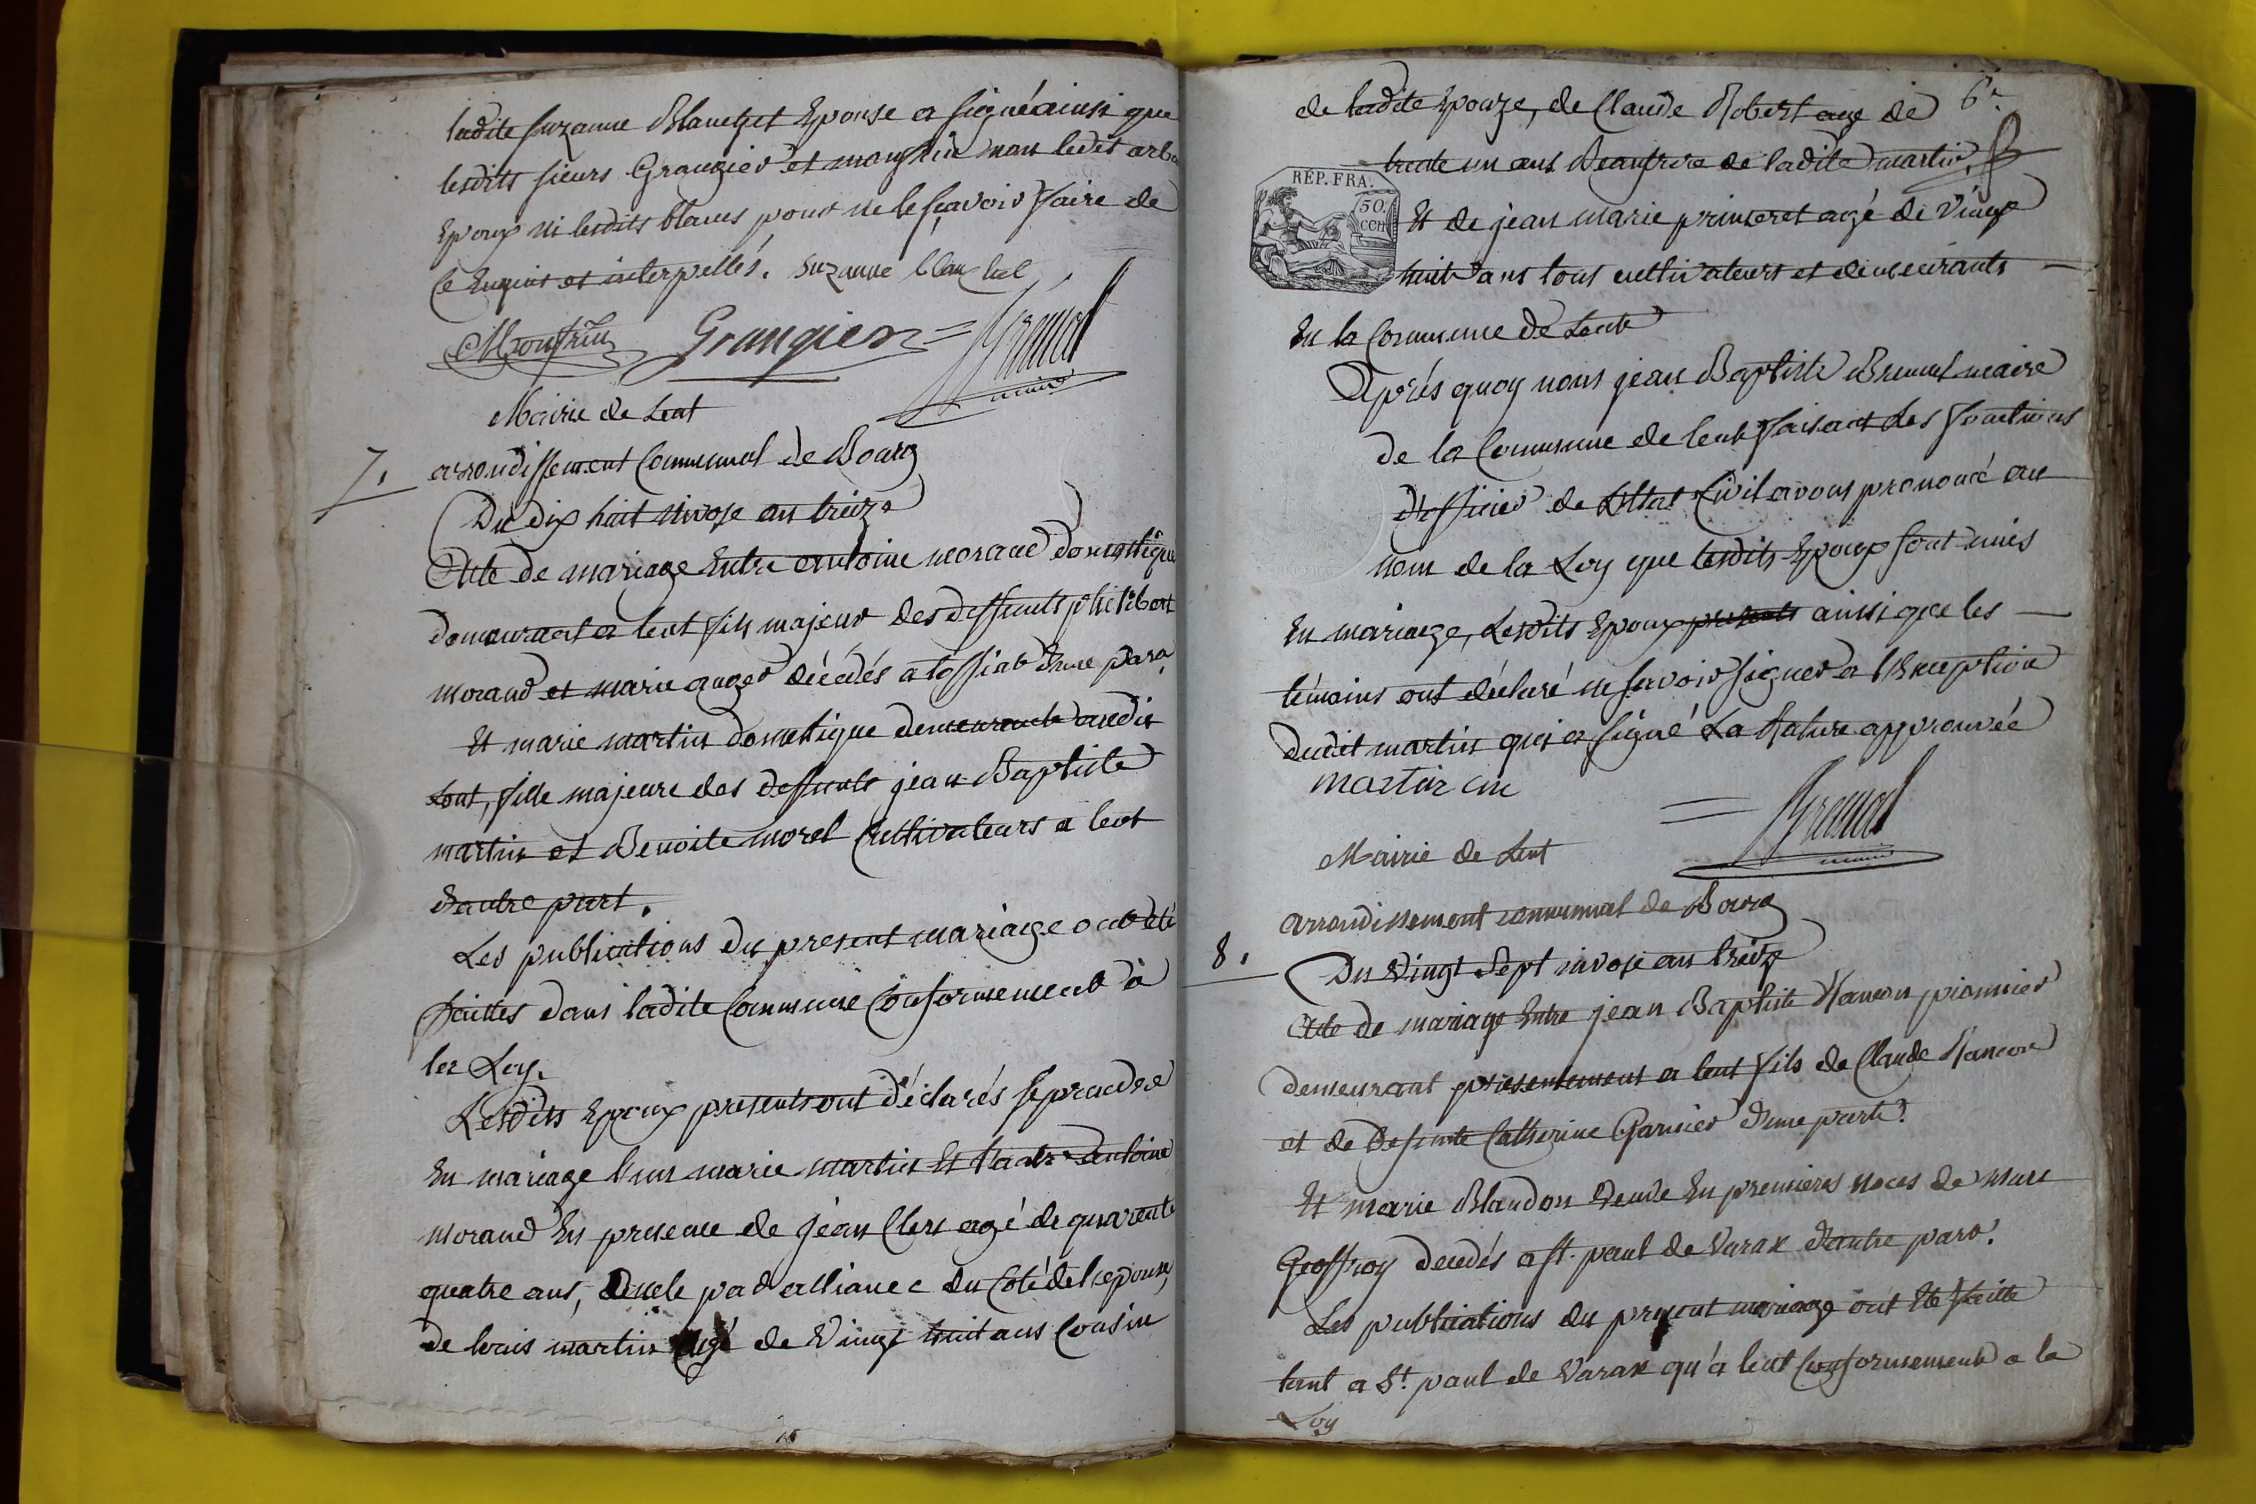 ladite suzanne Blanchet Epouse a signé ainsi que
lesdits sieurs Grangier et monfrin non ledit
Epoux ni lesdits blancs pour ne le sçavoir faire de
ce Enquis et interpellés. suzanne blanchet
Monfrin Grangier Brunal maire
Mairie de Lent
7. arrondissement Communal de Bourg
Du dix huit nivose an treize
Acte de mariage Entre antoine morand domestique
demeurant a lent fils majeur des deffunts philibert
morand et marie auger décédés a tossiat d'une part
Et marie martin domestique demeurante audit
Lent, fille majeure des deffunts jean Baptiste
martin et Benoite morel Cultivateurs a lent
d'autre part.
Les publications du present mariage ont été
faittes dans ladite Commune Conformement à
la Loy.
Lesdits Epoux presents ont déclarés se prendre
En mariage l'un marie martin Et l'autre antoine
morand En presence de jean Clerc agé de quarente
quatre ans, oncle par alliance du Coté de l'epouse,
de louis martin agé de vingt huit ans Cousin
de ladite Epouze, de Claude Robert age de 6.e
trente un ans Beaufrere de ladite martin.
REP. FRA.
50.
CCH
Et de jean marie prinseret agé de vingt
huit ans tous cultivateurs et demeurants
En la Commune de Lent
Aprés quoy nous jean Baptiste Brunal maire
de la Commune de lent faisant les fonctions
d'officier de L'Etat Civil avons prononcé au
nom de la Loy que lesdits Epoux sont unis
En mariage, Lesdits Epoux presents ainsi que les
témoins ont déclaré ne savoir signer a l'Exception
dudit martin qui a signé La Rature approuvée
martin Brunal maire
Mairie de Lent
arrondissement communal de Bourg
8. Du vingt Sept nivose an treize
Acte de mariage Entre jean Baptiste Rancon pionnier
demeurant presentement a lent fils de Claude Rancon
et de Defunte Catherine Garnier d'une part.
Et marie Blandon veuve En premieres noces de marc
Geoffroy decedés a st. paul de varax d'autre part.
Les publications du present mariage ont Eté faitte
tant a St. paul de varax qu'a lent Conformement a la
Loy